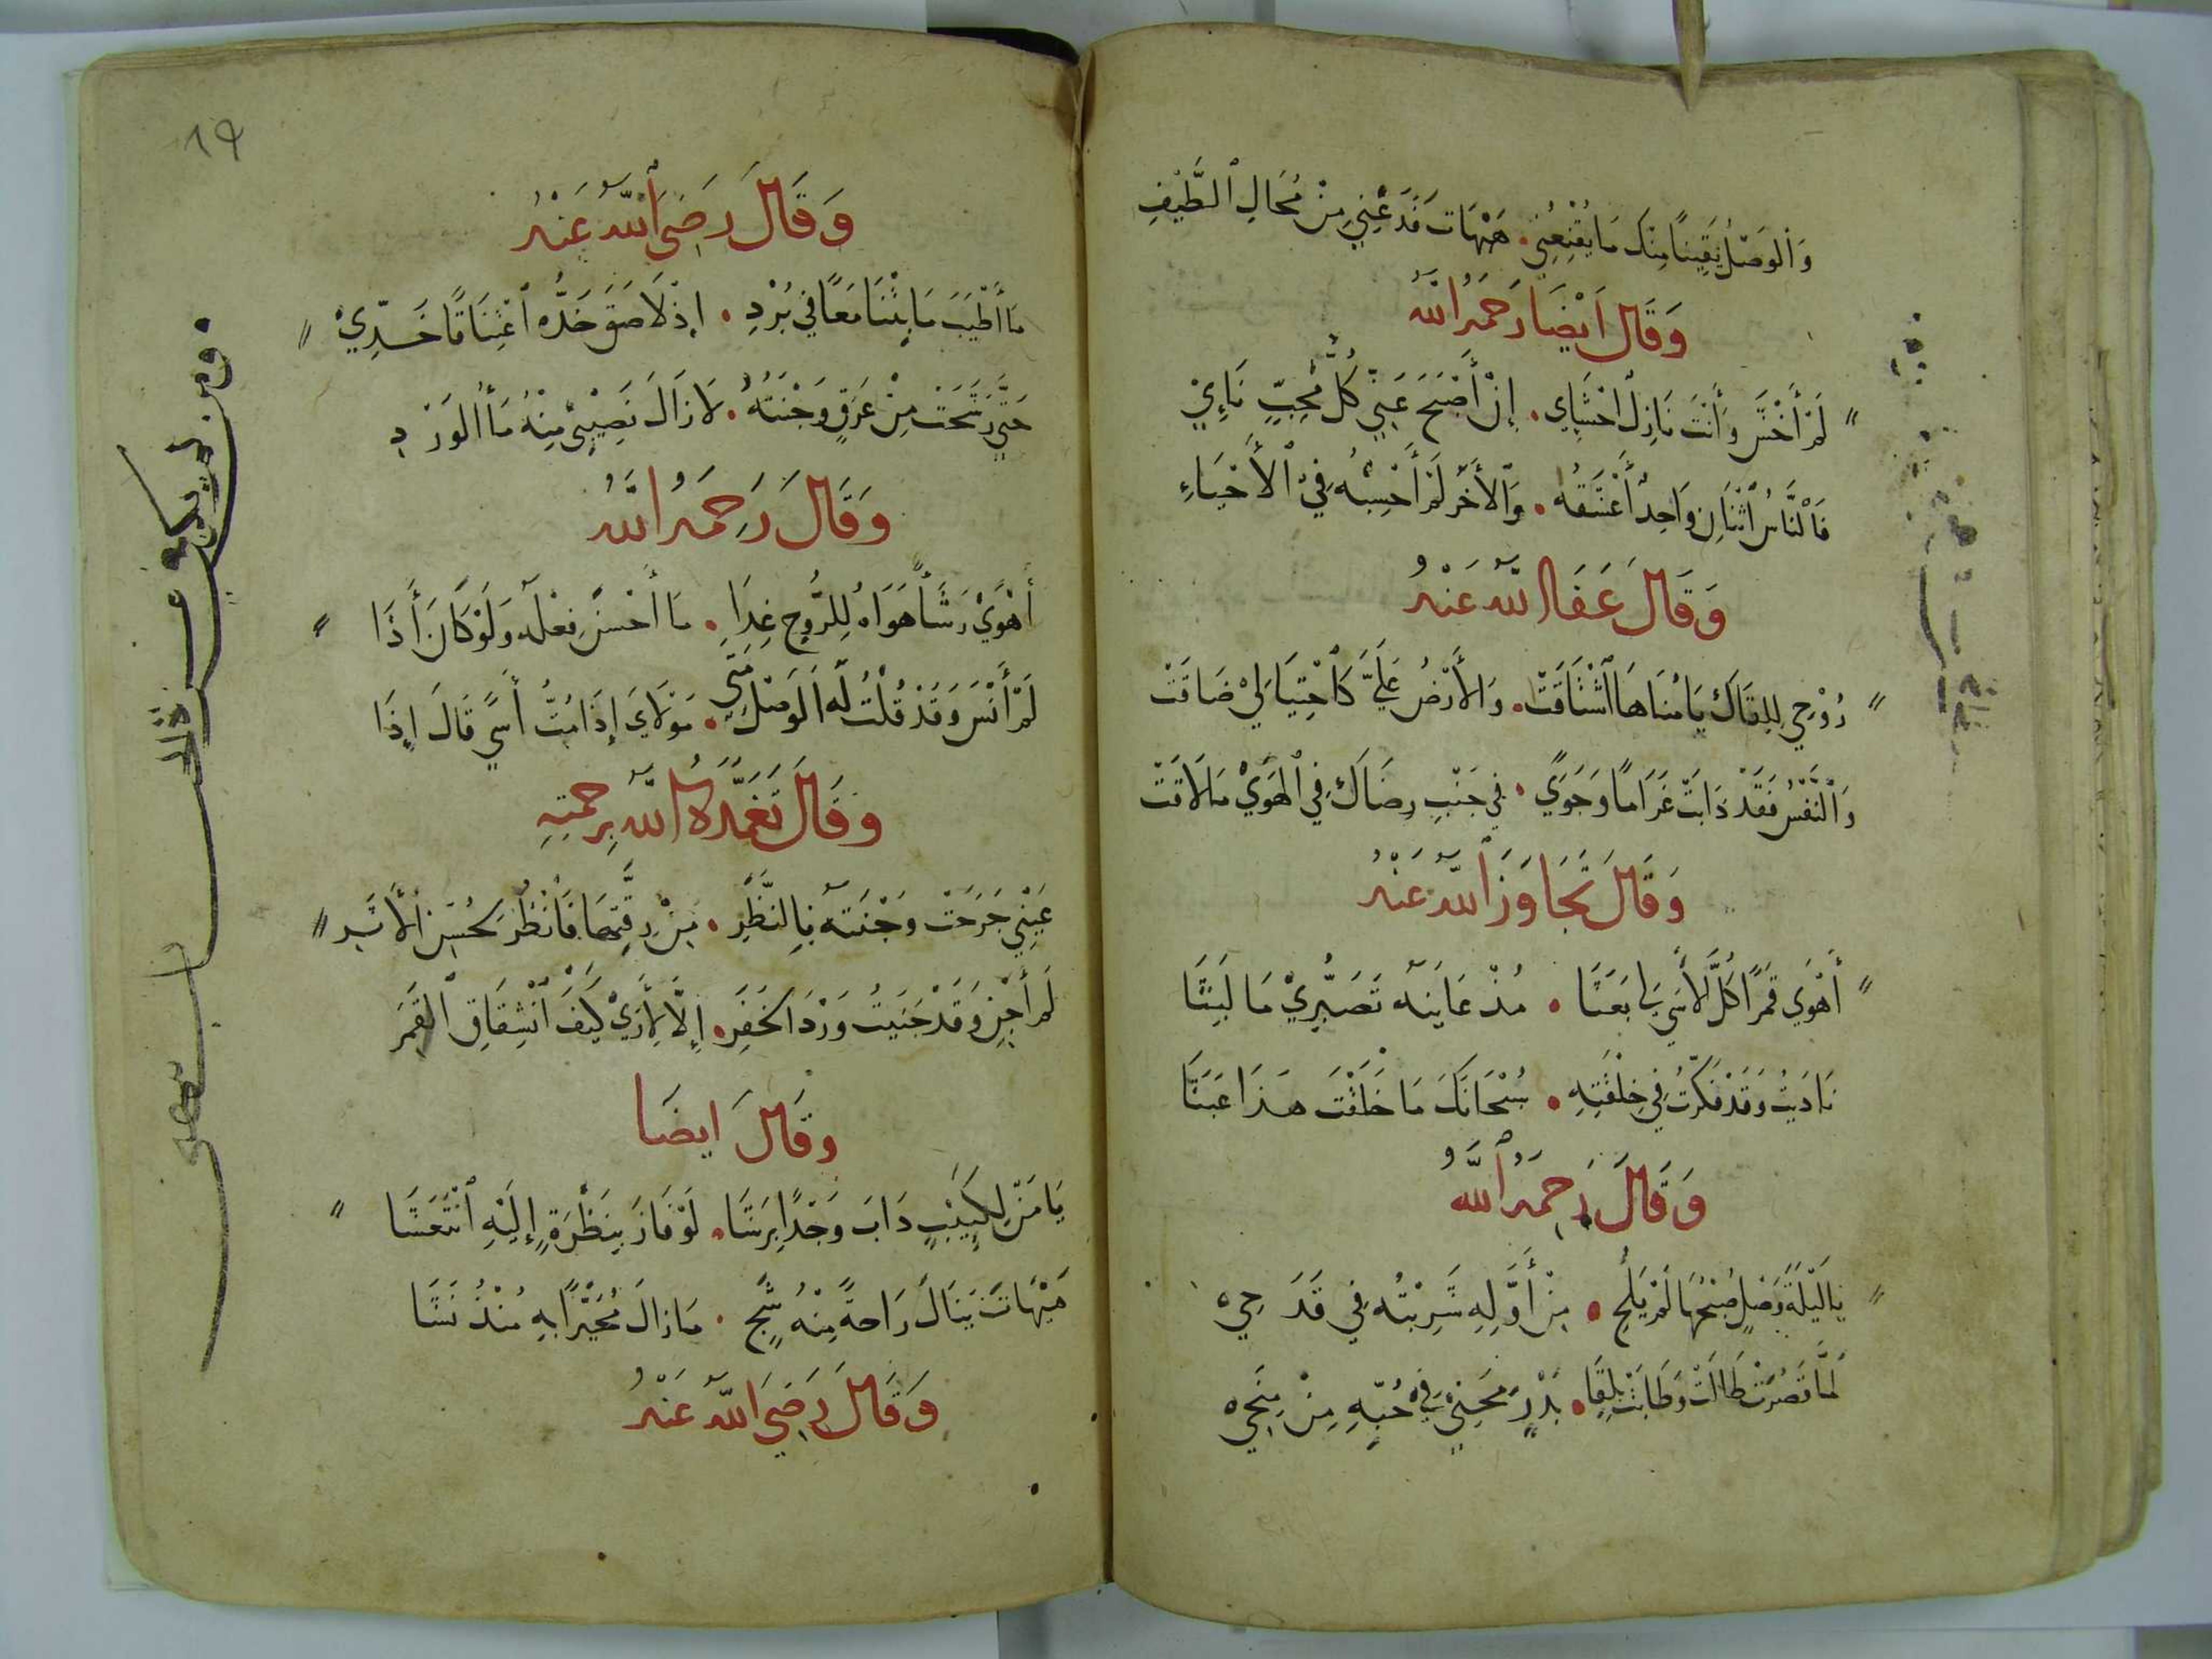 وَالْوَصْلُ يَقِينًا مِنْكَ مَا يُقْنِعُنِي • هَيْهَاتَ فَدَعْنِي مِنْ مُحَالِ الطَّيْفِ
وَقَالَ اَيْضًا رَحِمَهُ اللهُ
لَمْ أَخْشَ وَأَنْتَ نَازِلٌ احْشَايِ • إِنْ أَصْبَحَ عَنِّي كُلُّ مُحِبٍّ نَاءِيْ
فَالنَّاسُ اثْنَانِ وَاحِدٌ أَعْشَقُهُ • وَالْأَخَرُ لَمْ أَحْسِبْهُ فِي الْأَحْيَاءِ
وَقَالَ عَفَا اللهُ عَنْهُ
رُوْحِي لِلِقَاكَ يَا مُنَاهَا اشْتَاقَتْ • وَالْأَرْضُ عَلَيَّ كَاحْتِيَالِيْ ضَاقَتْ
وَالنَّفْسُ فَقَدْ ذَابَتْ غَرَامًا وَجَوًى • فِي جَنْبِ رِضَاكَ فِي الْهَوَى مَا لَاقَتْ
وَقَالَ تَجَاوَزَ اللهُ عَنْهُ
أَهْوَى قَمَرًا كُلَّ الْأَسَى لِي بَعَثَا • مُذْ عَايَنَهُ تَصَبُّرِيْ مَا لَبِثَا
نَادَيْتُ وَقَدْ فَكَّرْتُ فِي خِلْقَتِهِ • سُبْحَانَكَ مَا خَلَقْتَ هَذَا عَبَثَا
وَقَالَ رَحِمَهُ اللهُ
يَا لَيْلَةَ وَصْلٍ صُبْحُهَا لَمْ يَلُحِ • مِنْ أَوَّلِهِ شَرِبْتُهُ فِي قَدَحِي
لَمَّا قَصُرَتْ طَالَتْ وَطَابَتْ بِلِقَا • بَدْرٍ مِحَنِيْ فِي حُبِّهِ مِنْ مِنَحِي
١٩
وَقَالَ رَضِيَ اللهُ عَنْهُ
مَا أَطْيَبَ مَا بِتْنَا مَعًا فِي بُرْدِ • اِذْ لَاصَقَ خَدُّه اعْتِنَاقًا خَدِّيْ
حَتَّى رَشَحَتْ مِنْ عَرَقٍ وَجْنَتُهُ • لَا زَالَ نَصِيْبِيْ مِنْهُ مَاُ الْوَرْدِ
وَقَالَ رَحِمَهُ اللهُ
أَهْوَى رَشَأً هَوَاهُ لِلرُّوحِ غِذَا • مَا أَحْسَنَ فِعْلَهُ وَلَوْ كَانَ أَذَا
لَمْ أَنْسَ وَقَدْ قُلْتُ لَهُ الْوَصْلُ مَتَى • مَوْلَايَ إِذَا مُتُّ أَسًى قَالَ إِذَا
وَقَالَ تَغَمَّدَهُ اللهُ بِرَحْمَتِهِ
عَيْنِي جَرَحَتْ وَجْنَتَهُ بِالنَّظَرِ • مِنْ رِقَّتِهَا فَانْظُرْ لِحُسْنِ الْأَثَرِ
لَمْ أَجْنِ وَقَدْ جَنَيْتُ وَرْدَ الْخَفَرِ • إِلَّا لِأَرَى كَيْفَ انْشِقَاقُ الْقَمَرِ
وَقَالَ ايضًا
يَا مَنْ لِكَئِيْبٍ ذَابَ وَجْدًا بِرَشَا • لَوْ فَازَ بِنَظْرَةٍ إِلَيْهِ انْتَعَشَا
هَيْهَاتَ يَنَالُ رَاحَةً مِنْهُ شَجٍ • مَا زَالَ مُعَثَّرًا بِهِ مُنْذُ نَشَا
وَقَالَ رَضِيَ اللهُ عَنْهُ